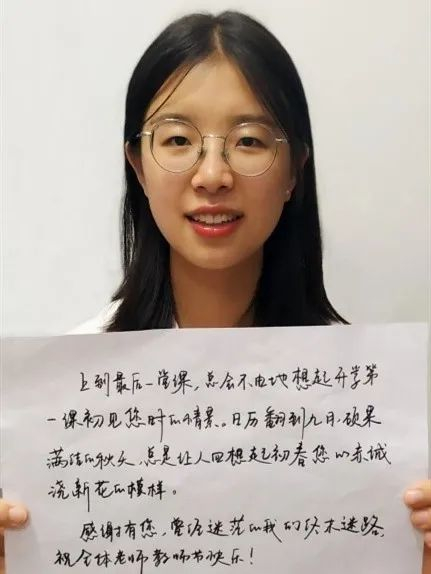 上到最后一堂课，总会不由地想起开学第
一课初见您时的情景。日历翻到九月，硕果
满结的秋天，总是让人回想起初春您以赤诚
浇新花的模样。
感谢有您，曾经迷茫的我终未迷路，
祝全体老师教师节快乐！